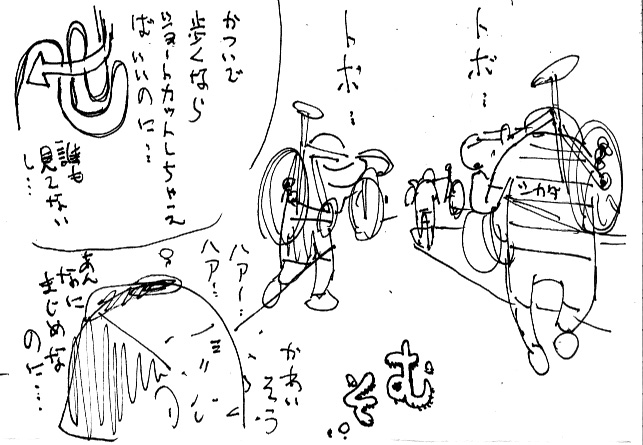 トボ…
トボ…
かついで
歩くなら
ショートカットしちゃえ
ばいいのに…
誰も
見てない
し…
シカダ
ハアー…
ハアー…
あんなに
まじめな
のに…
かあい
そう
むそ